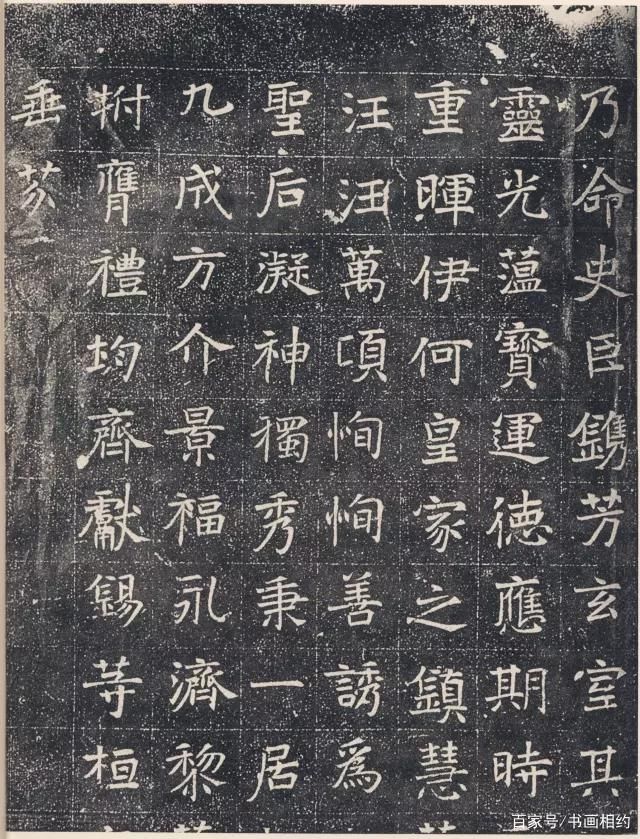 乃命史臣鐫芳玄室其
靈光蕰寶運德應期時
重暉伊何皇家之鎮慧
汪汪萬頃恂恂善誘為
聖后凝神獨秀秉一居
九成方介景福永濟黎
拊膺禮均齊獻錫等桓
垂芬
百家号/书画相约